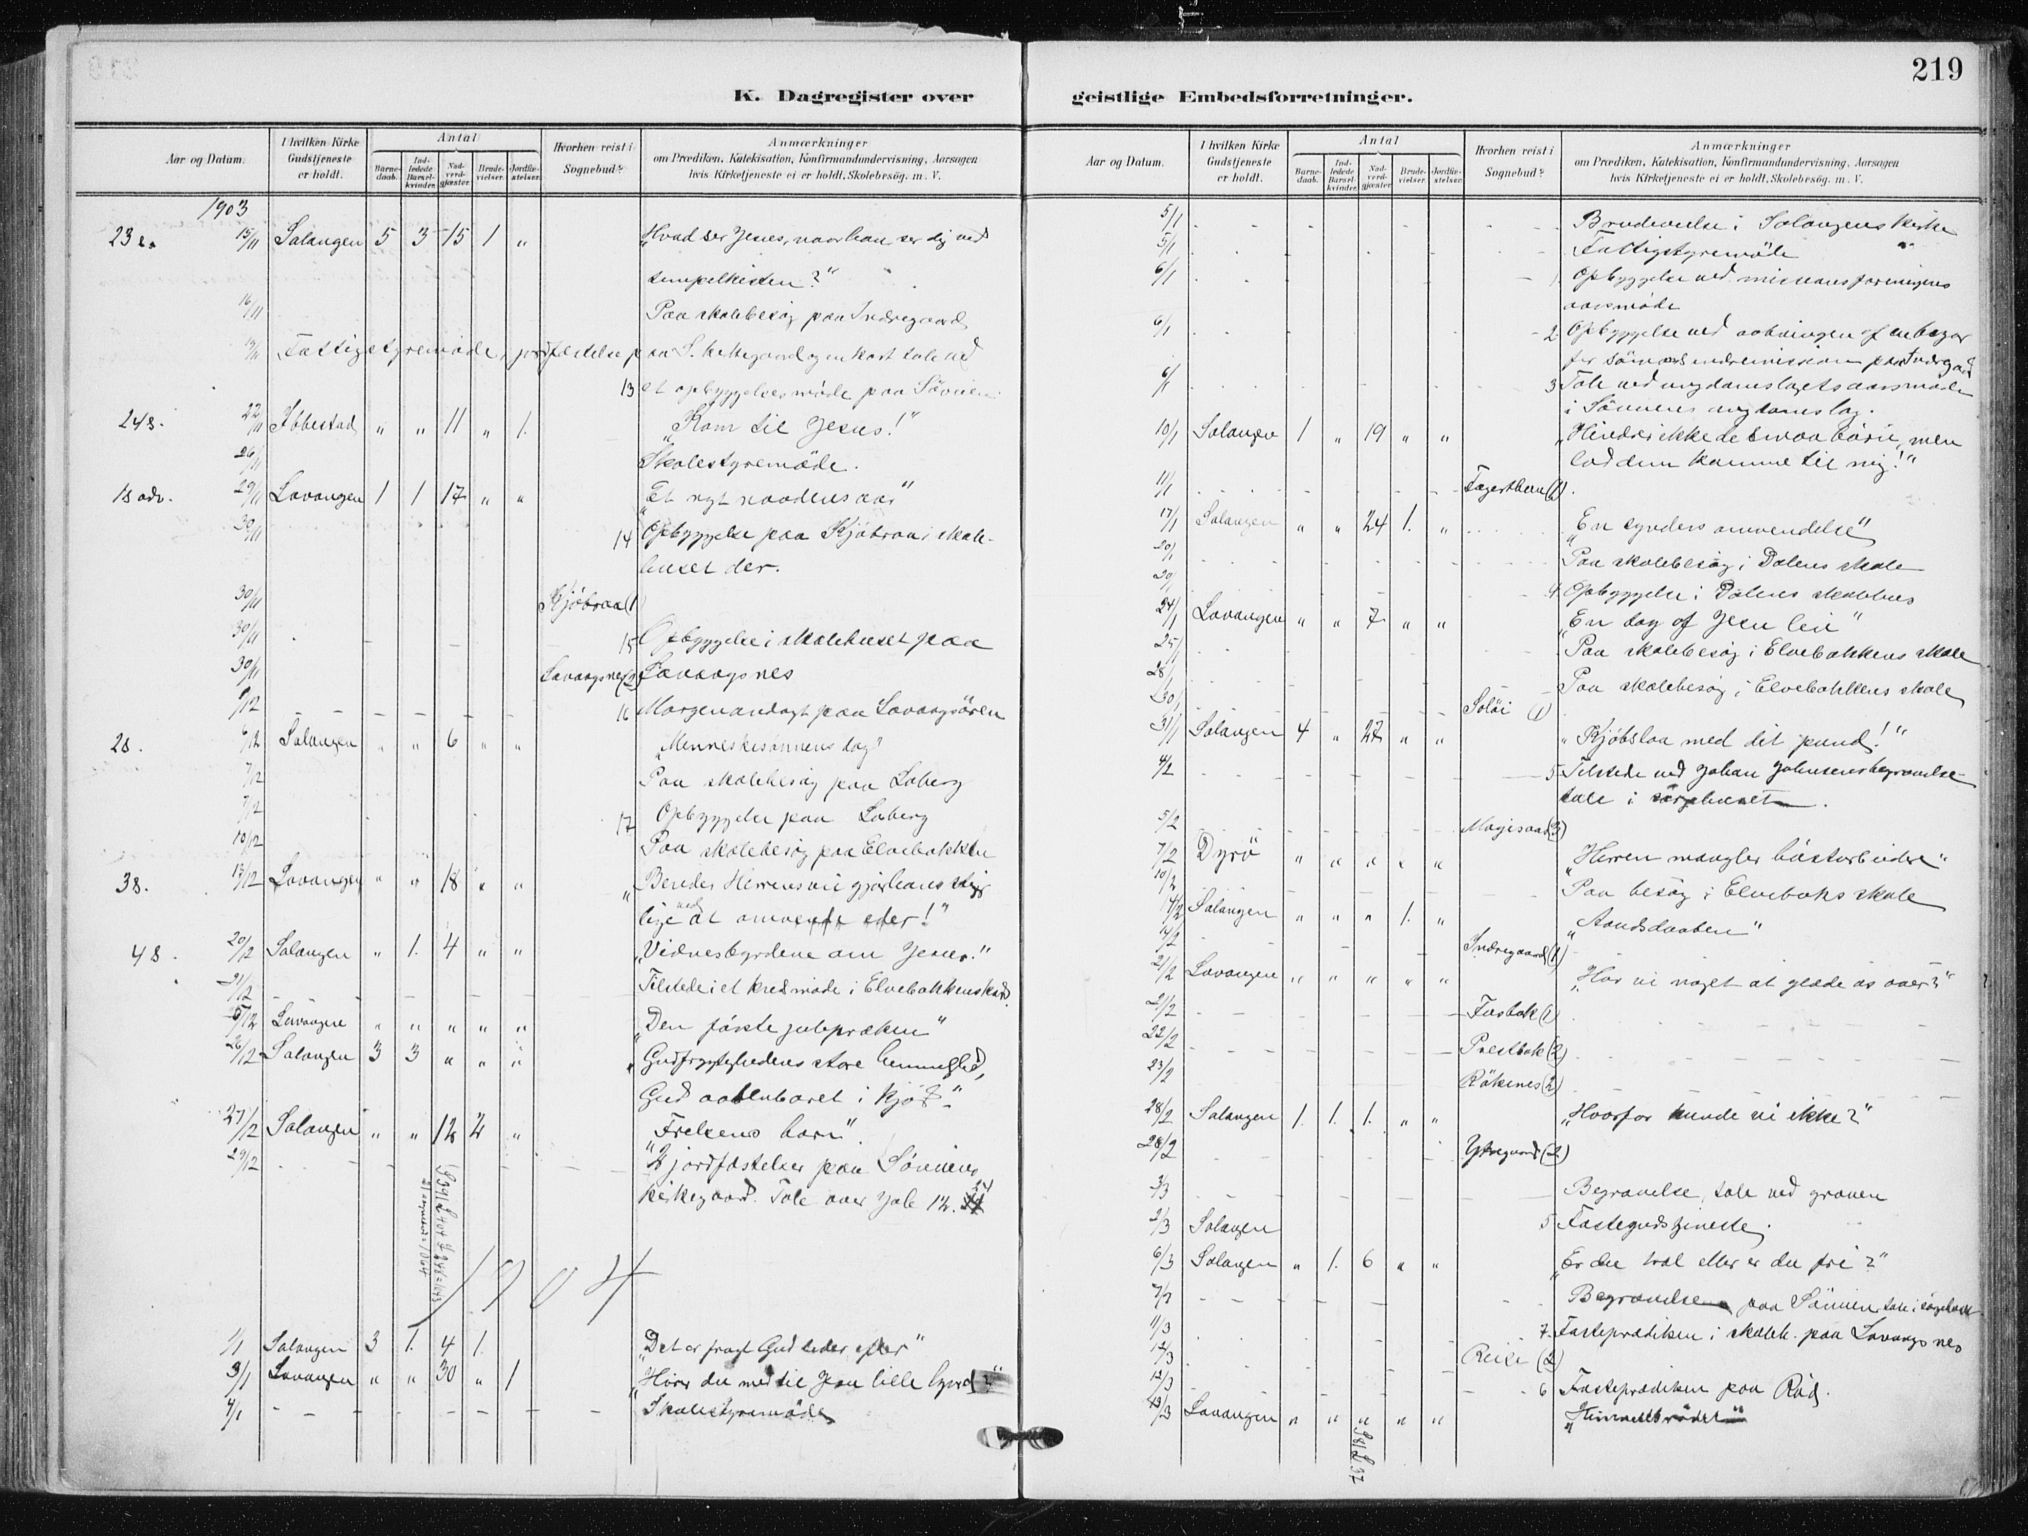 219
K. Dagregister over geistlige Embedsforretninger.
Aar og Datum. I hvilken Kirke Gudstjeneste er holdt. Antal Barnedaab. Indledede Barselkvinder. Nadverdgjæster. Brudevielser. Jordfæstelser. Hvorhen reist i Sognebud? Anmærkninger
om Prædiken, Katekisation, Konfirmandundervisning, Aarsagen
hvis Kirketjeneste ei er holdt, Skolebesøg. m. V.
1903
23 s. 15/11 Salangen 5 3 15 1 „ „Hvad ser Jesus, naar han ser dig ved
tempelkisten?“
16/11 Paa skolebesøg paa Indregaard
Fattigstyremøde, jordfæstelse paa S. kirkegaard og en kort tale ved
13 et opbyggelsesmøde paa Søvien.
24 s. 22/11 Ibbestad „ „ 11 „ 1. „Kom til Jesus!“
26/11 Skolestyremøde.
1 s adv. 29/11 Lavangen 1 1 17 „ „ „Et nyt naadens aar“
30/11 14 Opbyggelse paa Kjøbraa i skole-
huset der.
30/11 Kjøbraa (1)
30/11 15 Opbyggelse i skolehuset paa
30/11 Lavangsnes (2) Lavangsnes
1/12 16 Morgenandagt paa Lavangsøren
2 s. 6/12 Salangen „ „ 6 „ „ „Menneskesønnens dag“
7/12 Paa skolebesøg paa Laberg
7/12 17 Opbyggelse paa Laberg
10/12 Paa skolebesøg paa Elvebakken
3 s. 13/12 Lavangen „ „ 18 „ „ „Bereder Herrens vei gjør hans stier
lige ved at omvende eder!“
4 s. 20/12 Salangen „ 1. 4 „ „ „Vidnesbyrdene om Jesus.“
21/12 Tilstede i et kredsmøde i Elvebakkens
25/12 Lavangen „ „ „ „ „ „Den første julepræken“
26/12 Salangen 3 3 „ „ „ „Gudfrygtighedens store hemmelighed,
Gud aabenbaret i kjød“
27/12 Salangen „ „ 12 2 „ „Frelsens barn“.
29/12 2 jordfæstelser paa Søviens
kirkegaard. Tale over Joh 12. 24
1904
1/1 Salangen 3 1. 4 1. „Det er frugt Gud leder efter“
3/1 Lavangen „ „ 30 „ 1 „Hører du med til Jesu lille hjord?“
4/1 Skolestyremøde
Aar og Datum. I hvilken Kirke Gudstjeneste er holdt. Antal Barnedaab. Indledede Barselkvinder. Nadverdgjæster. Brudevielser. Jordfæstelser. Hvorhen reist i Sognebud? Anmærkninger
om Prædiken, Katekisation, Konfirmandundervisning, Aarsagen
hvis Kirketjeneste ei er holdt, Skolebesøg. m. V.
5/1 Brudevielse i Salangens kirke
5/1 Fattigstyremøde „
6/1 1 Opbyggelse ved missionsforeningens
aarsmøde
6/1 2 Opbyggelse ved aabningen af en bazar
for sømandsmission paa Indregaard
6/1 3 Tale ved ungdomslagets aarsmøde
i Søviens ungdomslag.
10/1 Salangen 1 „ 19 „ „ „Hindrer ikke de smaa børn, men
lad dem komme til mig!“
11/1
17/1 Salangen „ „ 24 1. „ „En synders omvendelse“
20/1 Paa skolebesøg i Dalens skole
20/1 4 Opbyggelse i Dalens skolehus
24/1 Lavangen „ „ 7 „ „ „En dag af Jesu liv“
25/1 Paa skolebesøg i Elvebakkens skole
28/1 Paa skolebesøg i Elvebakkens skole
30/1 Soløi (1)
31/1 Salangen 4 „ 27 „ „ „Kjøbslaa med dit pund!“
4/2 5 Tilstede ved Johan Johnsens begravelse
tale i sørgehuset.
5/2
7/2 Dyrø „ „ „ „ „ „Herren mangler høstarbeidere“
10/2 Paa besøg i Elvebaks skole
14/2 Salangen „ „ „ 1. „ „Aandsdaaben“
14/2 Indregaard (1)
21/2 Lavangen „ „ „ „ „ „Har vi noget at glæde os over?“
21/2 Fosbak (1)
22/2 Prestbak (2)
23/2 Røkenes (2)
28/2 Salangen 1. 1. 1. „ „ „Hvorfor kunde vi ikke?“
28/2 Ytregaard (2)
3/3 Begravelse, tale ved graven
2/3 Salangen 5 Fastegudstjeneste.
6/3 Salangen „ 1. 6 „ „ „Er du træl eller er du fri?“
7/3 Begravelse paa Søvien, tale i sørgehuset
11/3 7. Fasteprædiken i skoleh. paa Lavangsnes
12/3 (2)
12/3 6 Fasteprædiken paa Rød.
13/3 Lavangen „ „ „ „ „ „Himmelbrødet“